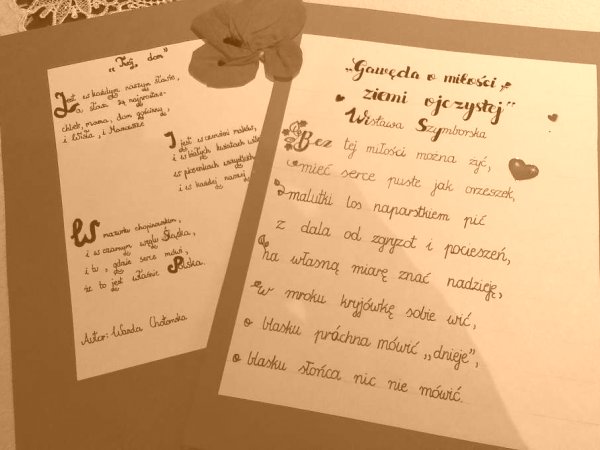 "Mój dom"
Jest w każdym naszym słowie,
a słowa są najprostsze-
chleb, mama, dom gościnny,
i Wisła, i Mazowsze
I jest w czerwieni maków,
i w białych kwiatach wiśni
w piosenkach wszystkich
i w każdej naszej
W mazurku chopinowskim,
i w czarnym węglu Śląska,
i tu, gdzie serce mówi,
że to jest właśnie Polska.
Autor: Wanda Chotomska
„Gawęda o miłości
ziemi ojczystej"
Wisława Szymborska
Bez tej miłości można żyć,
mieć serce puste jak orzeszek,
malutki los naparstkiem pić
z dala od zgryzot i pocieszeń,
na własną miarę znać nadzieję,
w mroku kryjówkę sobie wić,
o blasku próchna mówić „dnieje",
o blasku słońca nic nie mówić.